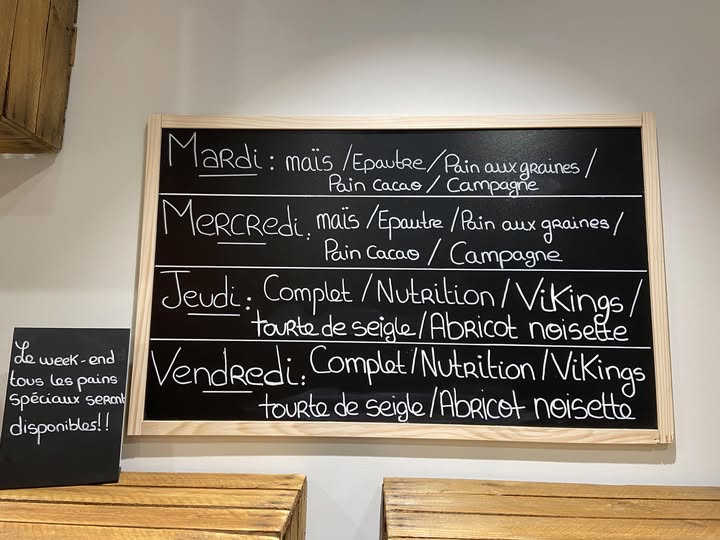 Mardi : maïs / Epautre / Pain aux graines /
Pain cacao / Campagne
Mercredi : maïs / Epautre / Pain aux graines /
Pain Cacao / Campagne
Jeudi : Complet / Nutrition / Vikings /
tourte de seigle / Abricot noisette
Vendredi : Complet / Nutrition / Vikings
tourte de seigle / Abricot noisette
Le week-end
tous les pains
spéciaux seront
disponibles!!